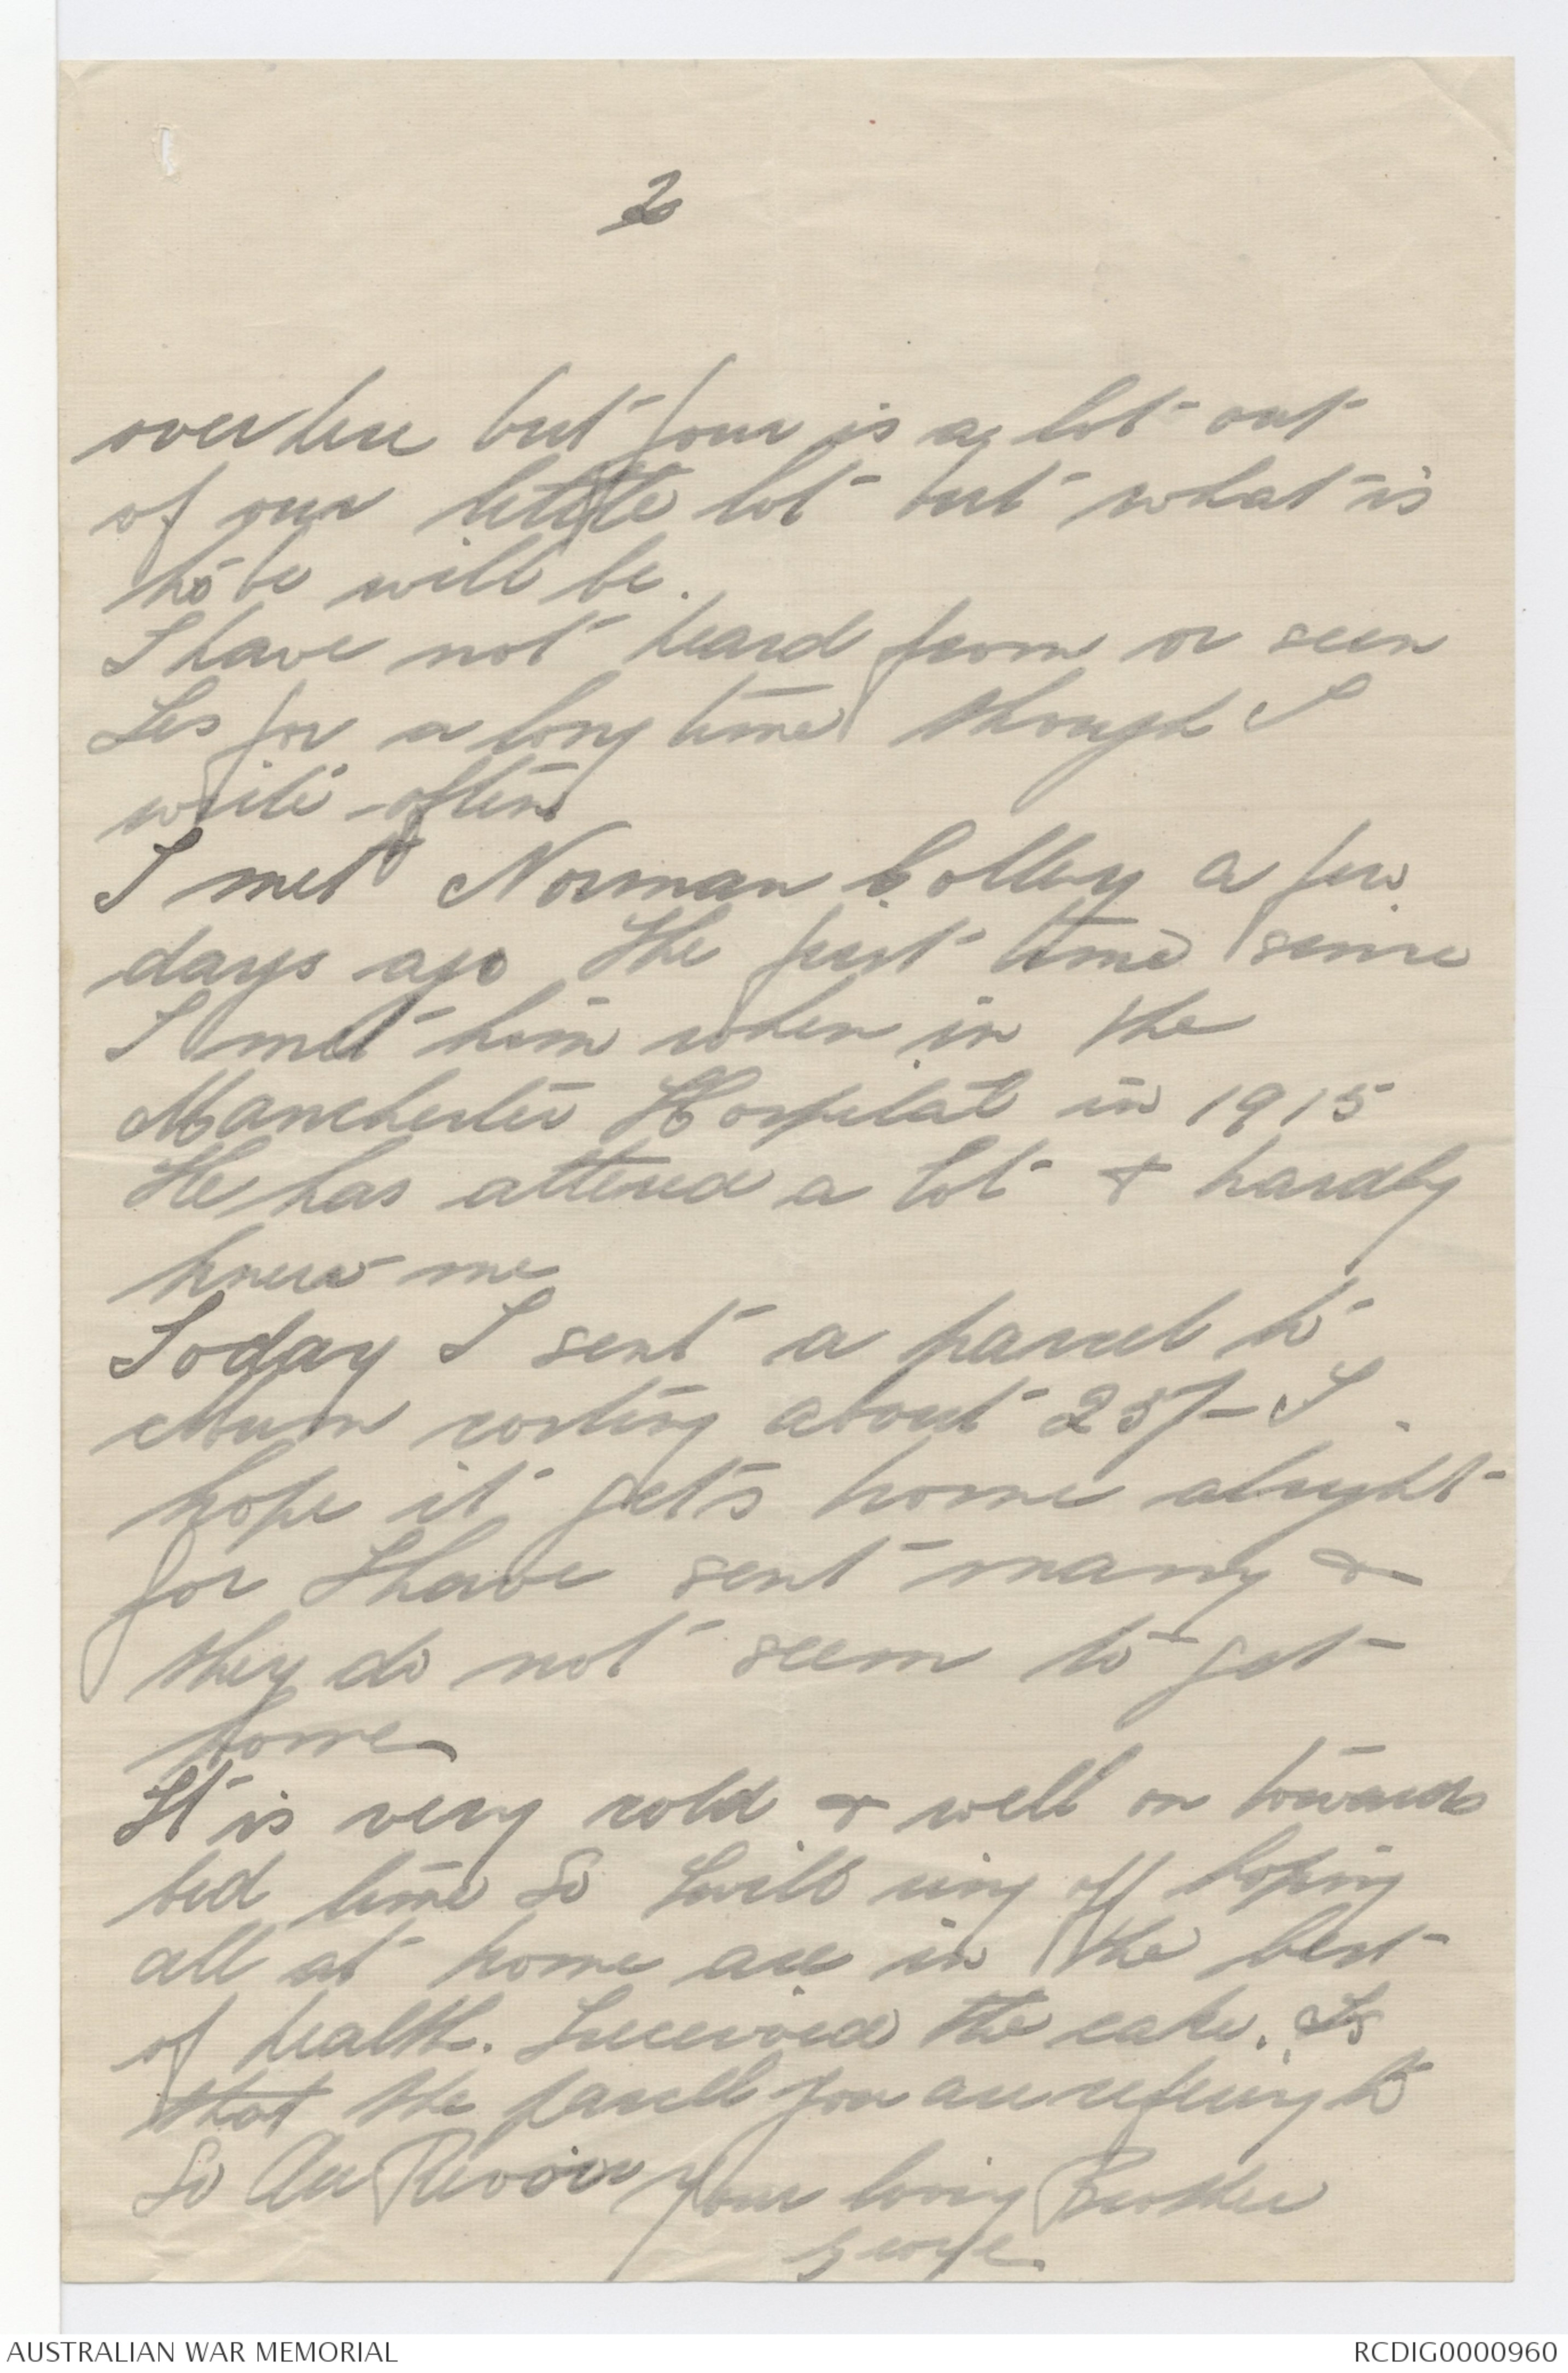 2
over here but four is a lot out
of our little lot but what is
to be will be.
I have not heard from or seen
Les for a long time though I
write often
I met Norman Colley a few
days ago the first time since
I met him when in the
Manchester Hospital in 1915
He has altered a lot & hardly
knew me
Today I sent a parcel to
Mum costing about 25/- I
hope it gets home alright
for I have sent many &
they do not seem to get
home
It is very cold & well on towards
bed time so I will ring off hoping
all at home are in the best
of health. I received the cake. Is
that the parcell you are refering to
So Au Revoir Your loving Brother
George.
AUSTRALIAN WAR MEMORIAL
RCDIG0000960